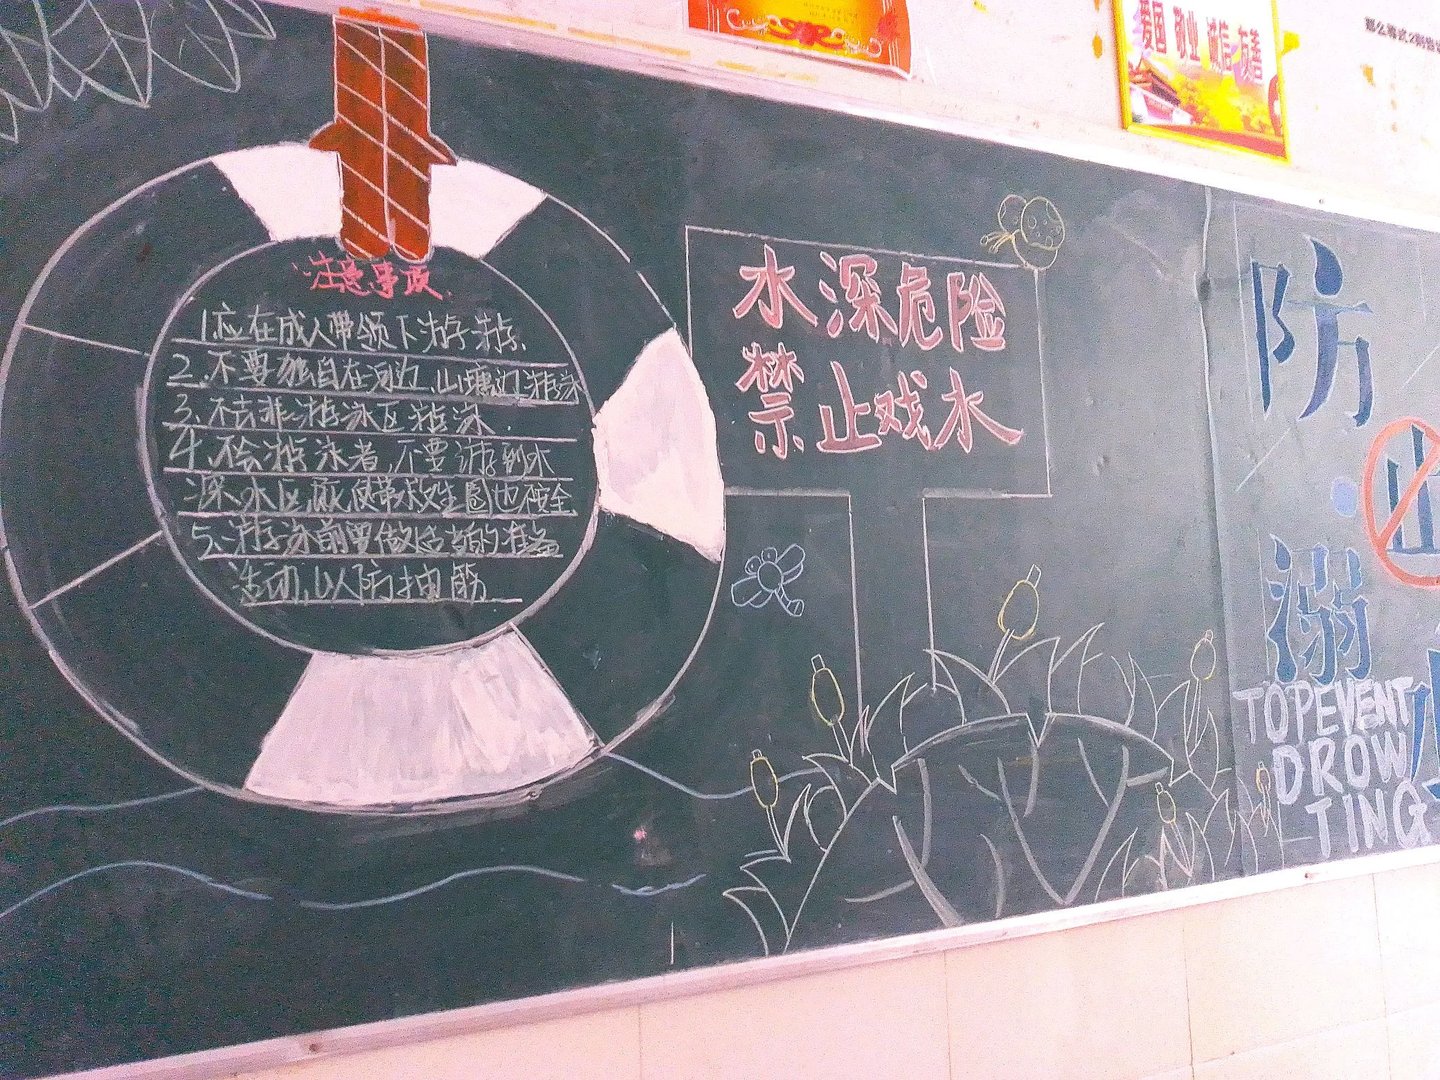 爱国 敬业 诚信 友善
注意事项
1.应在成人带领下游泳.
2.不要独自在河边、山塘边游泳
3.不去非游泳区游泳.
4.不会游泳者,不要游到水
深水区,即使带救生圈也不安全
5.游泳前要做适当的准备
活动,以防抽筋
水深危险
禁止戏水
防
止
溺
TOPEVENT
DROW
TING